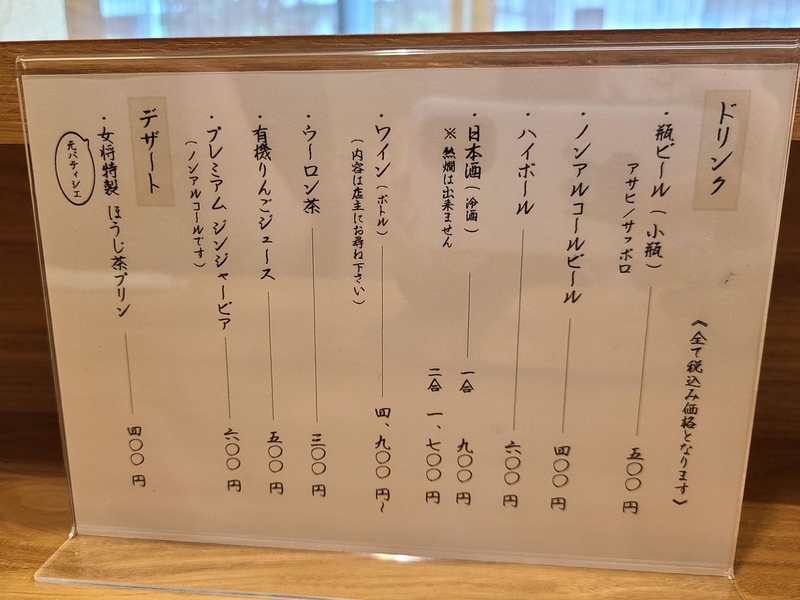 ドリンク
《全て税込み価格となります》
・瓶ビール(小瓶) 五〇〇円
アサヒ/サッポロ
・ノンアルコールビール 四〇〇円
・ハイボール 六〇〇円
・日本酒(冷酒) 一合 九〇〇円
※熱燗は出来ません 二合 一、七〇〇円
・ワイン(ボトル) 四、九〇〇円〜
(内容は店主にお尋ね下さい)
・ウーロン茶 三〇〇円
・有機りんごジュース 五〇〇円
・プレミアム ジンジャービア 六〇〇円
(ノンアルコールです)
デザート
・女将特製 ほうじ茶プリン 四〇〇円
元パティシエ